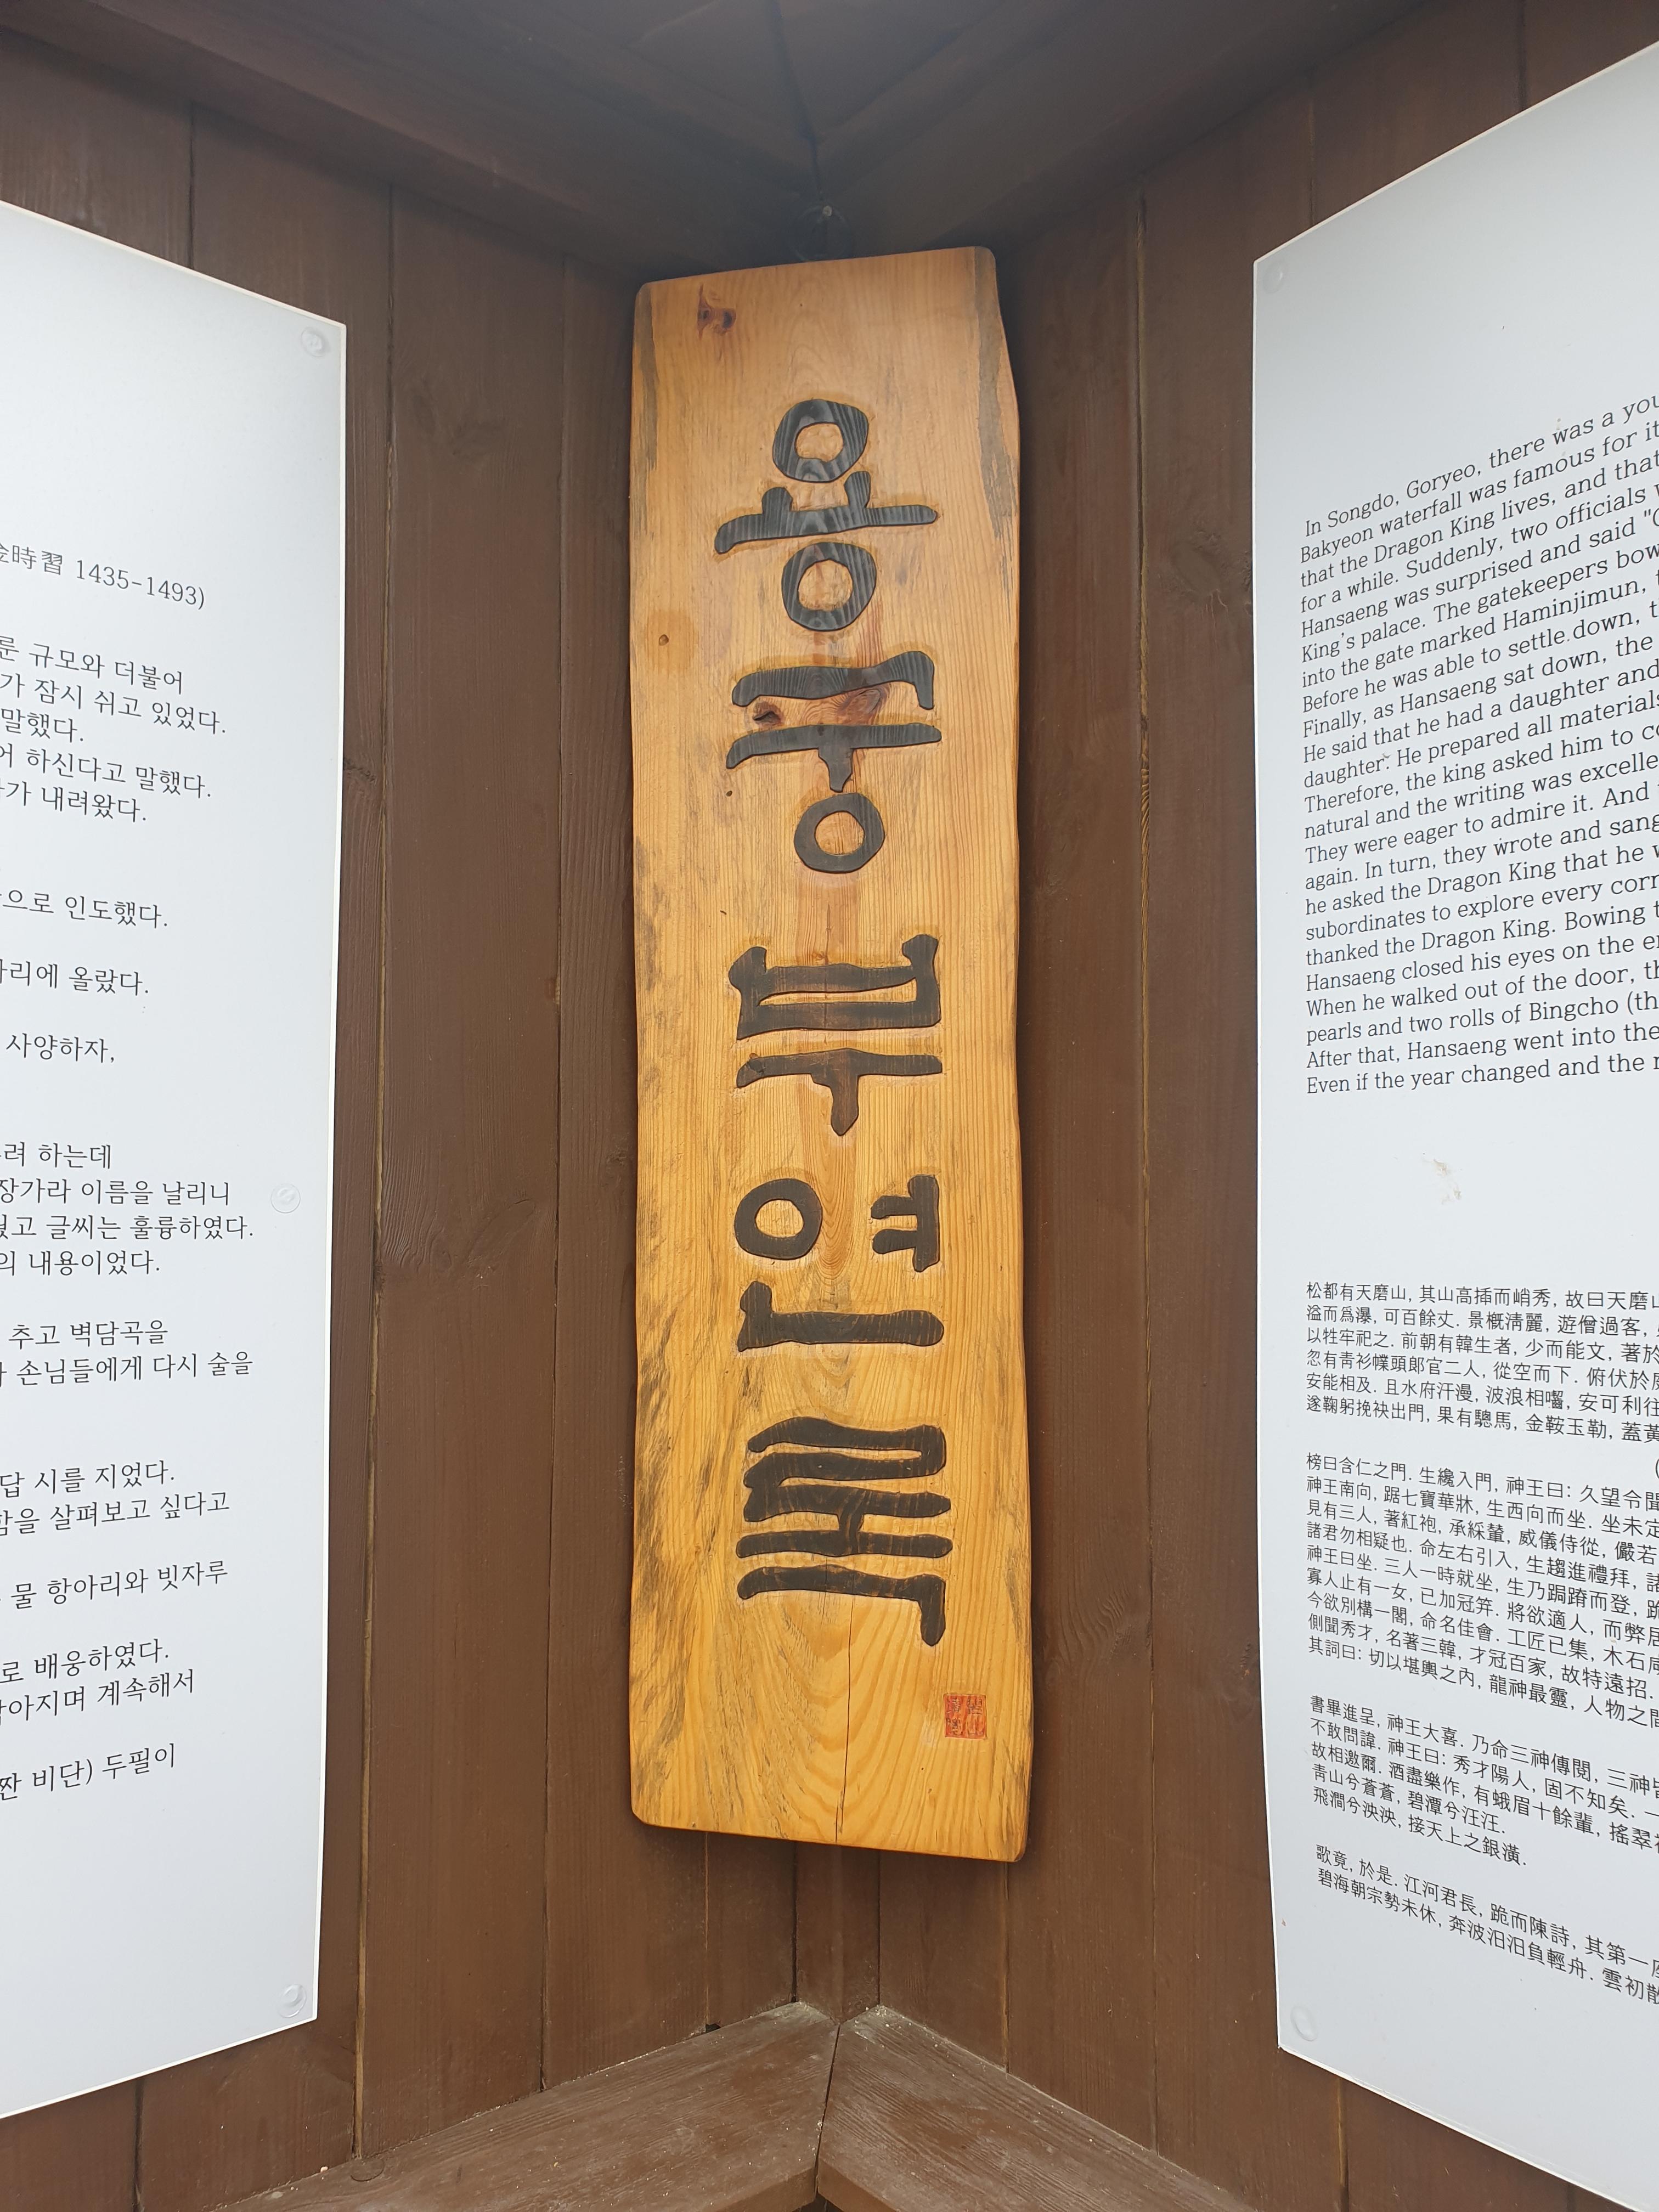 金時習 1435-1493)
룬 규모와 더불어
가 잠시 쉬고 있었다.
말했다.
하신다고 말했다.
내려왔다.
으로 인도했다.
올랐다.
사양하자,
하는데
장가라 이름을 날리니
글씨는 훌륭하였다.
내용이었다.
추고 벽담곡을
손님들에게 다시 술을
답 시를 지었다.
살펴보고 싶다고
물 항아리와 빗자루
로 배웅하였다.
계속해서
짠 비단) 두필이
용궁부연록
In Songdo, Goryeo, there was a you
Bakyeon waterfall was famous for it
that the Dragon King lives, and that
for a while. Suddenly, two officials
Hansaeng was surprised and said
King's palace. The gatekeepers bow
into the gate marked Haminjimun,
Before he was able to settle down,
Finally, as Hansaeng sat down, the
He said that he had a daughter and
daughter. He prepared all materials
Therefore, the king asked him to co
natural and the writing was excelle
They were eager to admire it. And
again. In turn, they wrote and sang
he asked the Dragon King that he
subordinates to explore every corn
thanked the Dragon King. Bowing
Hansaeng closed his eyes on the
When he walked out of the door,
pearls and two rolls of Bingcho (th
After that, Hansaeng went into the
Even if the year changed and the
松都有天磨山, 其山高揷而峭秀, 故曰天磨山
溢而爲瀑, 可百餘丈. 景槪淸麗, 遊僧過客,
以牲牢祀之. 前朝有韓生者, 少而能文, 著於
忽有靑衫幞頭郞官二人, 從空而下. 俯伏於
安能相及. 且水府汗漫, 波浪相囓, 安可利往
遂鞠躬挽袂出門, 果有驄馬, 金鞍玉勒, 蓋黃
榜曰含仁之門. 生纔入門, 神王曰: 久望令聞
神王南向, 踞七寶華牀, 生西向而坐. 坐未定
見有三人, 著紅袍, 承綵輦, 威儀侍從, 儼若
諸君勿相疑也. 命左右引入, 生趨進禮拜, 諸
神王曰坐. 三人一時就坐, 生乃跼蹐而登, 跪
寡人止有一女, 已加冠笄. 將欲適人, 而弊居
今欲別構一閣, 命名佳會. 工匠已集, 木石咸
側聞秀才, 名著三韓, 才冠百家, 故特遠招.
其詞曰: 切以堪輿之內, 龍神最靈, 人物之間
書畢進呈, 神王大喜. 乃命三神傳閱, 三神皆
不敢問諱. 神王曰: 秀才陽人, 固不知矣. 一
故相邀爾. 酒盡樂作, 有蛾眉十餘輩, 搖翠
靑山兮蒼蒼, 碧潭兮汪汪.
飛澗兮泱泱, 接天上之銀潢.
歌竟, 於是. 江河君長, 跪而陳詩, 其第一座
碧海朝宗勢未休, 奔波汨汨負輕舟. 雲初散